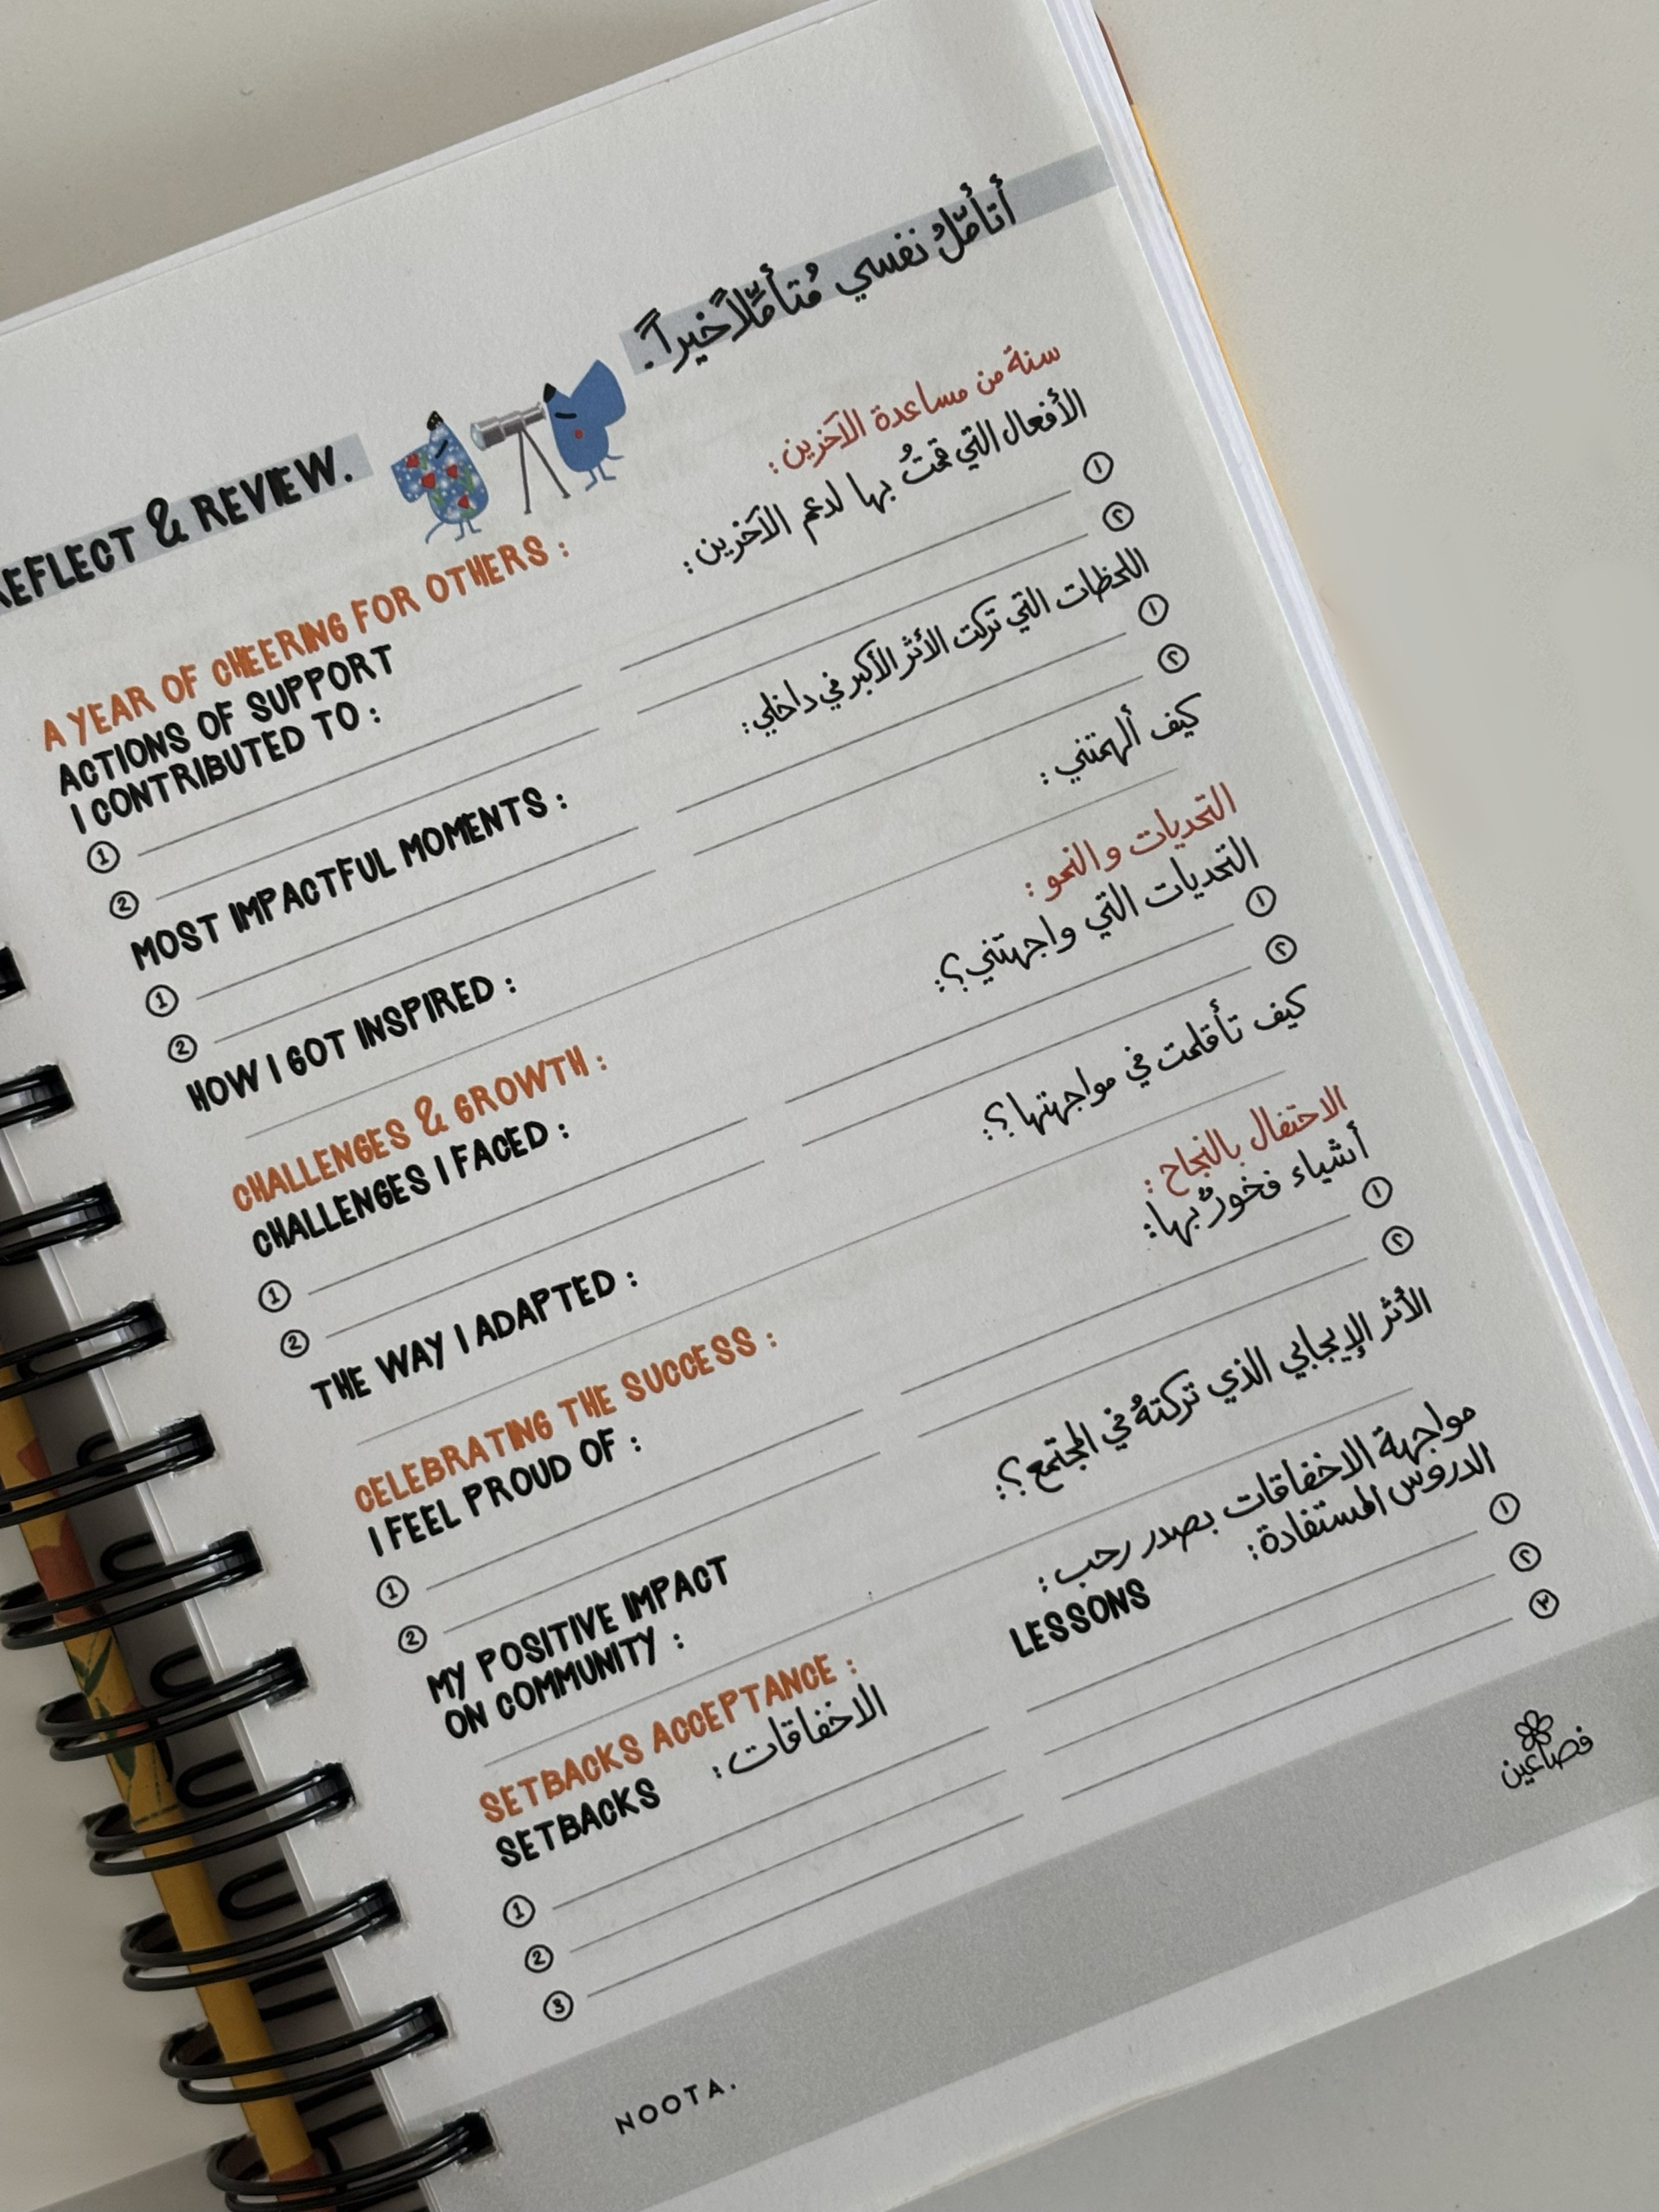 REFLECT & REVIEW.
أتأمّلُ نفسي مُتأمِّلاً خيراً.
A YEAR OF CHEERING FOR OTHERS :
سنة من مساعدة الآخرين :
ACTIONS OF SUPPORT
I CONTRIBUTED TO :
الأفعال التي قمتُ بها لدعم الآخرين :
1 ١
2 ٢
MOST IMPACTFUL MOMENTS :
اللحظات التي تركت الأثر الأكبر في داخلي :
1 ١
2 ٢
HOW I GOT INSPIRED :
كيف ألهمتني :
CHALLENGES & GROWTH :
التحديات والنمو :
CHALLENGES I FACED :
التحديات التي واجهتني؟:
1 ١
2 ٢
THE WAY I ADAPTED :
كيف تأقلمت في مواجهتها؟:
CELEBRATING THE SUCCESS :
الاحتفال بالنجاح :
I FEEL PROUD OF :
أشياء فخورٌ بها:
1 ١
2 ٢
MY POSITIVE IMPACT
ON COMMUNITY :
الأثر الإيجابي الذي تركتهُ في المجتمع؟:
SETBACKS ACCEPTANCE :
مواجهة الاخفاقات بصدر رحب :
SETBACKS الاخفاقات :
LESSONS الدروس المستفادة:
1 ١
2 ٢
3 ٣
NOOTA.
فصاعين